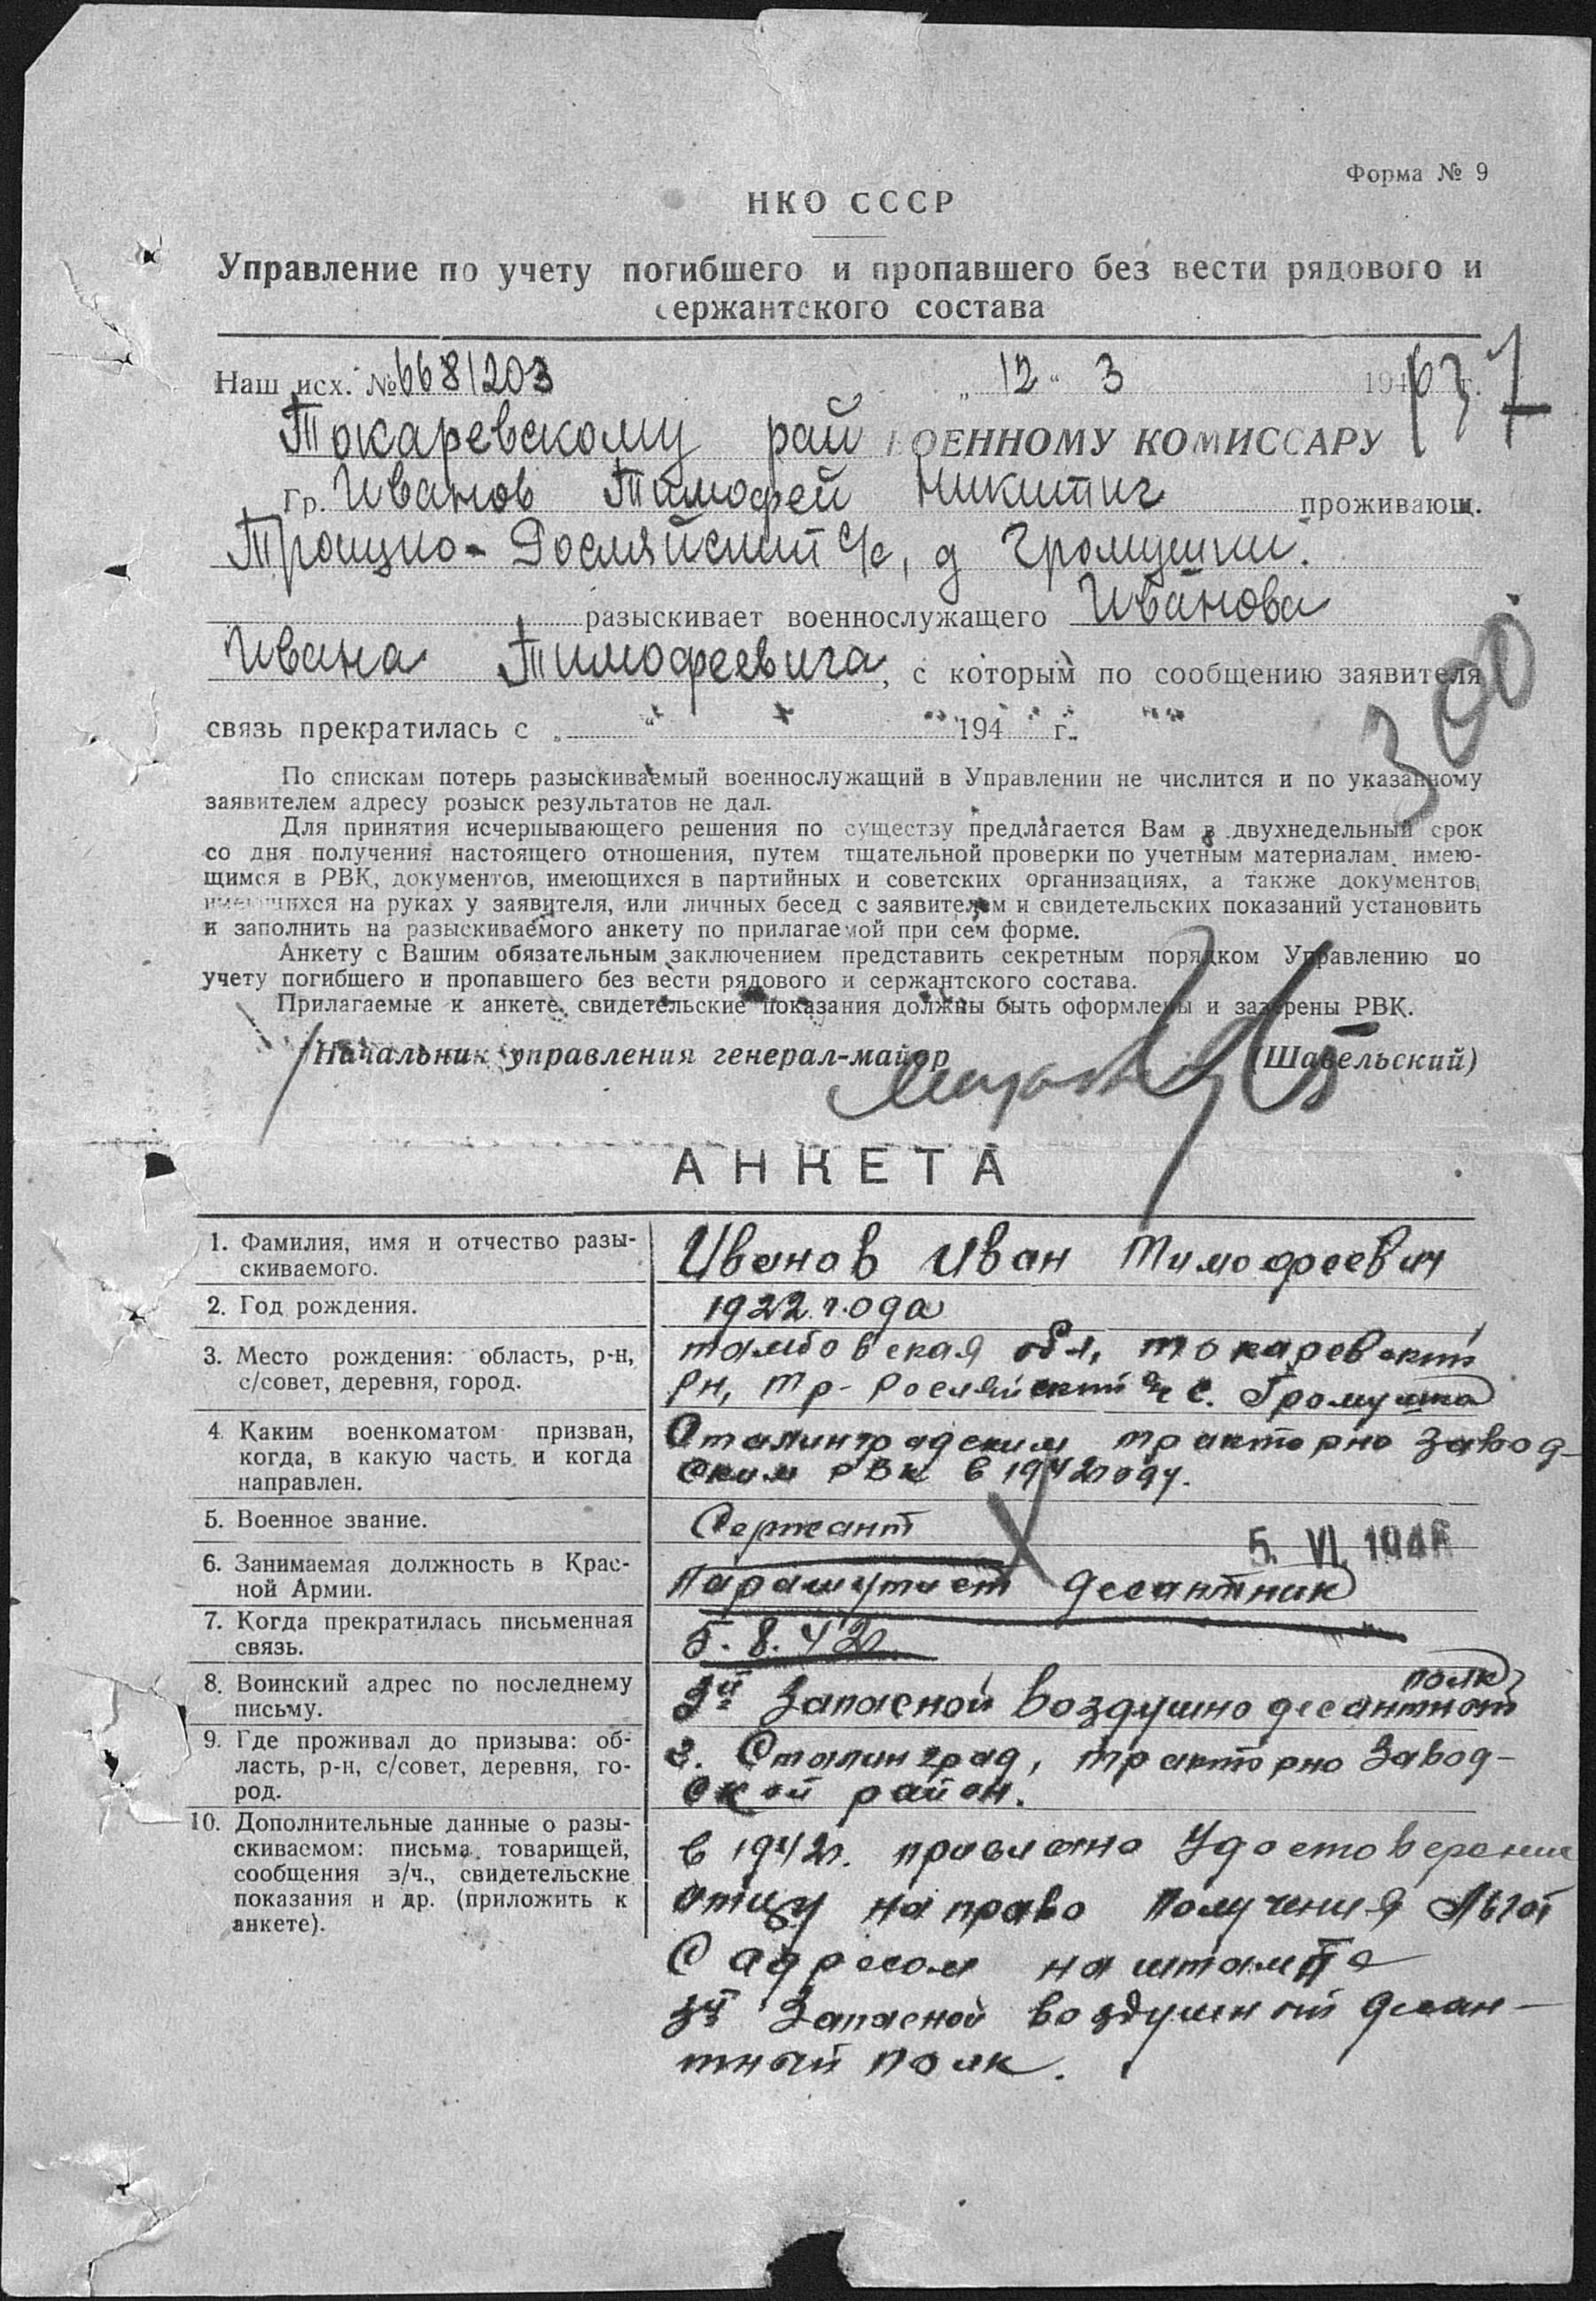 Форма № 9
НКО СССР
Управление по учету погибшего и пропавшего без вести рядового и
сержантского состава
Наш исх. № 6681203 „12“ 3 194 г.
637
Токаревскому рай ВОЕННОМУ КОМИССАРУ
Гр. Иванов Тимофей Никитич проживающ.
Троицко-Росляйский с/с, д Громушки.
разыскивает военнослужащего Иванова
Ивана Тимофеевича, с которым по сообщению заявителя
связь прекратилась с „ “ 194 г.
300
По спискам потерь разыскиваемый военнослужащий в Управлении не числится и по указанному
заявителем адресу розыск результатов не дал.
Для принятия исчерпывающего решения по существу предлагается Вам в двухнедельный срок
со дня получения настоящего отношения, путем тщательной проверки по учетным материалам, имею-
щимся в РВК, документов, имеющихся в партийных и советских организациях, а также документов,
имеющихся на руках у заявителя, или личных бесед с заявителем и свидетельских показаний установить
и заполнить на разыскиваемого анкету по прилагаемой при сем форме.
Анкету с Вашим обязательным заключением представить секретным порядком Управлению по
учету погибшего и пропавшего без вести рядового и сержантского состава.
Прилагаемые к анкете свидетельские показания должны быть оформлены и заверены РВК.
Начальник управления генерал-майор (Шавельский)
АНКЕТА
1. Фамилия, имя и отчество разы-
скиваемого.
Иванов Иван Тимофеевич
2. Год рождения.
1922 года
3. Место рождения: область, р-н,
с/совет, деревня, город.
тамбовская обл, токаревский
Рн, Тр-Росляйский с/с с. Громушка
4. Каким военкоматом призван,
когда, в какую часть и когда
направлен.
Сталинградским тракторно завод-
ским РВК в 1942 году.
5. Военное звание.
Сержант
5. VI. 1946
6. Занимаемая должность в Крас-
ной Армии.
Парашутист десантник
7. Когда прекратилась письменная
связь.
5. 8. 42г.
8. Воинский адрес по последнему
письму.
3й Запасной воздушно десантный полк
9. Где проживал до призыва: об-
ласть, р-н, с/совет, деревня, го-
род.
г. Сталинград, тракторно Завод-
ской район.
10. Дополнительные данные о разы-
скиваемом: письма товарищей,
сообщения з/ч., свидетельские
показания и др. (приложить к
анкете).
в 1942г. прислано Удостоверение
отцу на право Получения Льгот
С адресом на штампе
3й Запасной воздушный десан-
тный полк.